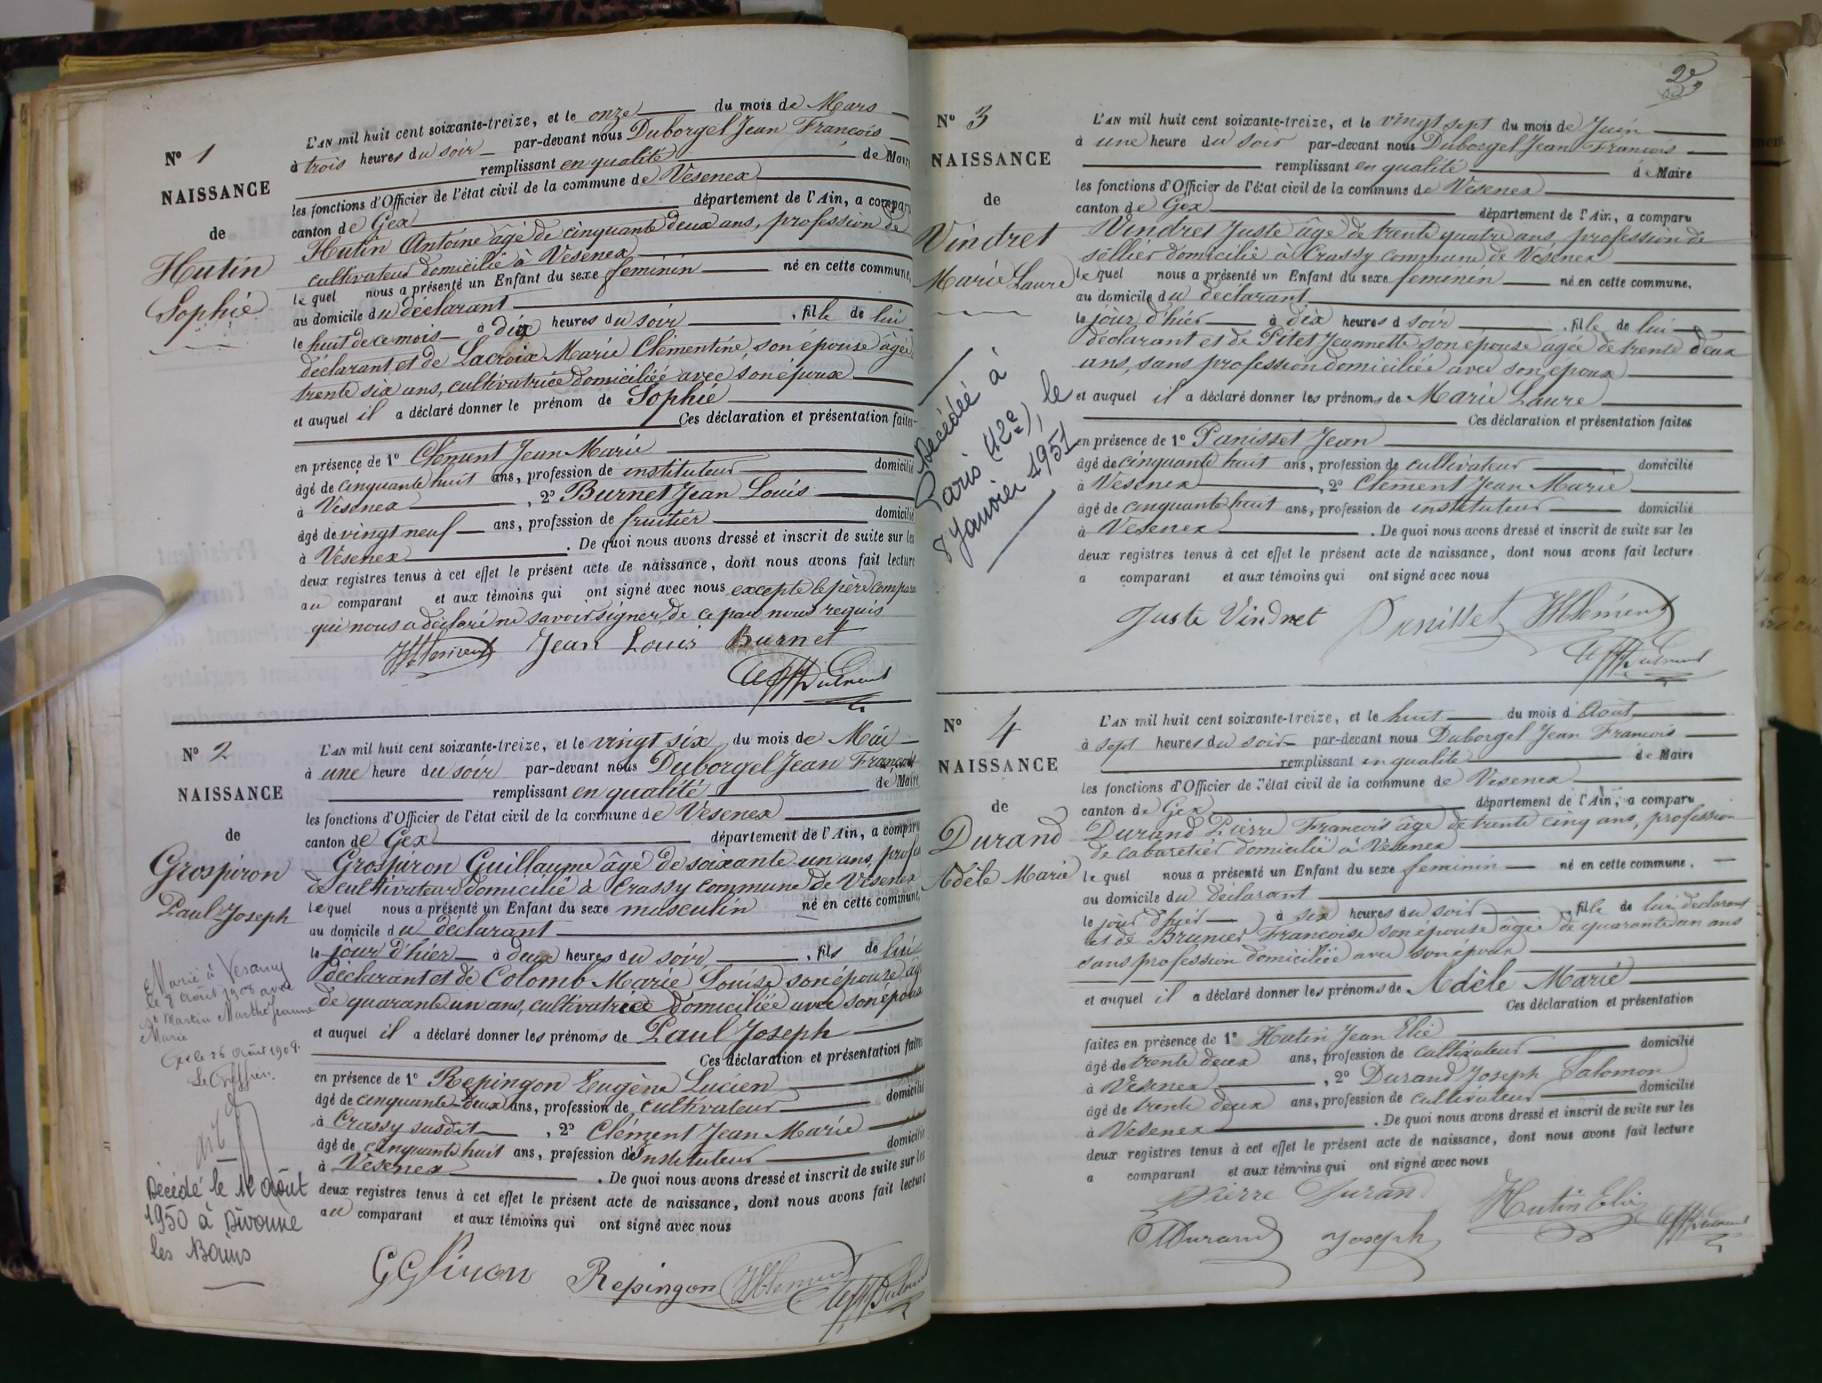 Nº 1
NAISSANCE
de
Hutin
Sophie
L'AN mil huit cent soixante-treize, et le onze du mois de Mars
à trois heures du soir par-devant nous Duborgel Jean François
remplissant en qualité de Maire
les fonctions d'Officier de l'état civil de la commune de Vesenex
canton de Gex département de l'Ain, a comparu
Hutin Antoine âgé de cinquante deux ans, profession de
cultivateur domicilié à Vesenex
le quel nous a présenté un Enfant du sexe feminin né en cette commune,
au domicile du déclarant
le huit de ce mois à dix heures du soir , fille de lui
déclarant et de Lacroix Marie Clémentine, son épouse agée
trente six ans, cultivatrice domiciliée avec son époux
et auquel il a déclaré donner le prénom de Sophie
Ces déclaration et présentation faites
en présence de 1º Clément Jean Marie
âgé de cinquante huit ans, profession de instituteur domicilié
à Vesenex , 2º Burnet Jean Louis
âgé de vingt neuf ans, profession de fruitier domicilié
à Vesenex . De quoi nous avons dressé et inscrit de suite sur les
deux registres tenus à cet effet le présent acte de naissance, dont nous avons fait lecture
au comparant et aux témoins qui ont signé avec nous excepté le père comparant
qui nous a déclaré ne savoir signer de ce par nous requis
Jean Louis Burnet
Nº 2
NAISSANCE
de
Grospiron
Paul Joseph
Marié à Vesancy
le 8 Août 1908 avec
Martin Marthe Jeanne
Marie
Gex le 26 Août 1908.
Le Greffier.
Décédé le 12 Août
1950 à Divonne
les Bains
L'AN mil huit cent soixante-treize, et le vingt six du mois de Mai
à une heure du soir par-devant nous Duborgel Jean François
remplissant en qualité de Maire
les fonctions d'Officier de l'état civil de la commune de Vesenex
canton de Gex département de l'Ain, a comparu
Grospiron Guillaume âgé de soixante un ans, profes
de cultivateur domicilié à Crassy commune de Vesenex
le quel nous a présenté un Enfant du sexe masculin né en cette commune,
au domicile du déclarant
le jour d'hier à deux heures du soir , fils de lui
déclarant et de Colomb Marie Louise son épouse âg
de quarante un ans, cultivatrice domiciliée avec son époux
et auquel il a déclaré donner les prénoms de Paul Joseph
Ces déclaration et présentation faites
en présence de 1º Repingon Eugène Lucien
âgé de cinquante-deux ans, profession de cultivateur domicilié
à Crassy susdit , 2º Clément Jean Marie
âgé de cinquante huit ans, profession de Instituteur domicilié
à Vesenex . De quoi nous avons dressé et inscrit de suite sur les
deux registres tenus à cet effet le présent acte de naissance, dont nous avons fait lecture
au comparant et aux témoins qui ont signé avec nous
Repingon
Nº 3
NAISSANCE
de
Vindret
Marie Laure
Décédée à
Paris (12e), le
8 Janvier 1951
L'AN mil huit cent soixante-treize, et le vingt sept du mois de Juin
à une heure du soir par-devant nous Duborgel Jean François
remplissant en qualité de Maire
les fonctions d'Officier de l'état civil de la commune de Vesenex
canton de Gex département de l'Ain, a comparu
Vindret Juste âgé de trente quatre ans, profession de
sellier domicilié à Crassy commune de Vesenex
le quel nous a présenté un Enfant du sexe feminin né en cette commune,
au domicile du déclarant
le jour d'hier à dix heures d soir , fille de lui
déclarant et de Pitet Jeannette son épouse agée de trente deux
ans, sans profession domiciliée avec son époux
et auquel il a déclaré donner les prénoms de Marie Laure
Ces déclaration et présentation faites
en présence de 1º Panisset Jean
âgé de cinquante huit ans, profession de cultivateur domicilié
à Vesenex , 2º Clément Jean Marie
âgé de cinquante huit ans, profession de instituteur domicilié
à Vesenex . De quoi nous avons dressé et inscrit de suite sur les
deux registres tenus à cet effet le présent acte de naissance, dont nous avons fait lecture
a comparant et aux témoins qui ont signé avec nous
Juste Vindret Panisset JMClément
Nº 4
NAISSANCE
de
Durand
Adèle Marie
L'AN mil huit cent soixante-treize, et le huit du mois d'Août
à sept heures du soir par-devant nous Duborgel Jean François
remplissant en qualité de Maire
les fonctions d'Officier de l'état civil de la commune de Vesenex
canton de Gex département de l'Ain, a comparu
Durand Pierre François âgé de trente cinq ans, profession
de cabaretier domicilié à Vesenex
le quel nous a présenté un Enfant du sexe feminin né en cette commune.
au domicile du déclarant
le jour d'hier à six heures du soir , fille de lui déclarant
et de Brunier Françoise son épouse agée de quarante un ans
sans profession domiciliée avec son époux
et auquel il a déclaré donner les prénoms de Adèle Marie
Ces déclaration et présentation
faites en présence de 1º Hutin Jean Elie
âgé de trente deux ans, profession de cultivateur domicilié
à Vesenex , 2º Durand Joseph Salomon
âgé de trente deux ans, profession de cultivateur domicilié
à Vesenex . De quoi nous avons dressé et inscrit de suite sur les
deux registres tenus à cet effet le présent acte de naissance, dont nous avons fait lecture
a comparant et aux témoins qui ont signé avec nous
Pierre Durand Hutin Elie
Durand Joseph